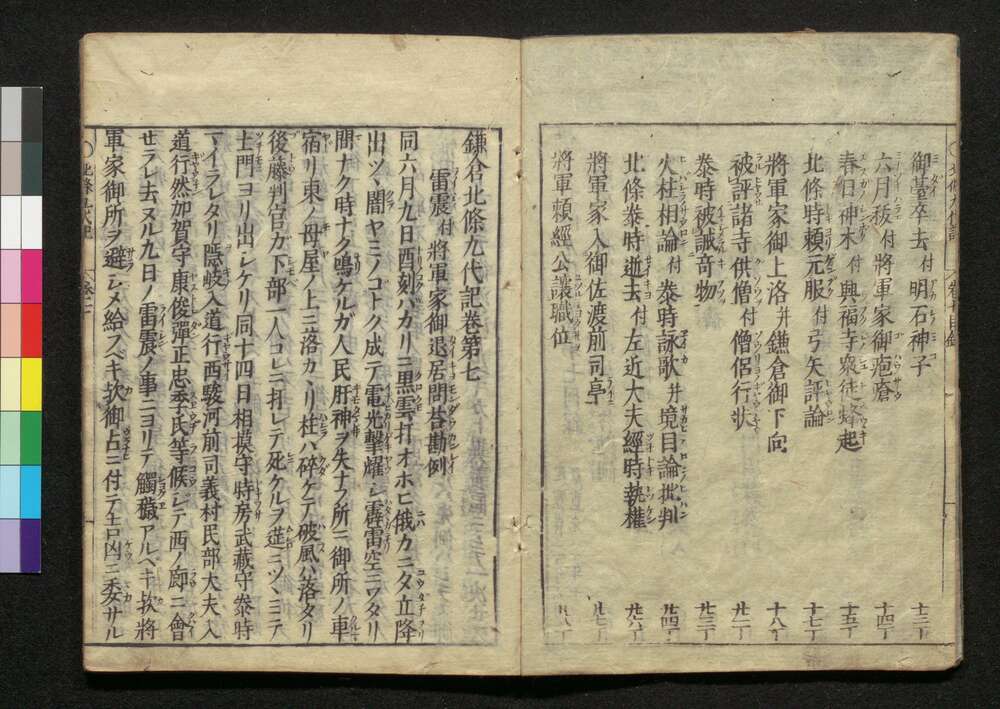 御臺卒去付明石神子 十三丁
六月秡付將軍家御疱瘡 十四丁
春日神木付興福寺衆徒蜂起 十五丁
北條時頼元服付弓矢評論 十七丁
將軍家御上洛并鎌倉御下向 十八丁
被評諸寺供僧付僧侶行状 廿一丁
泰時被誡奇物 廿三丁
火柱相論付泰時詠歌并境目論批判 廿四丁
北條泰時逝去付左近大夫經時執權 廿六丁
將軍家入御佐渡前司亭 廿七丁
將軍頼經公讓職位 廿八丁
鎌倉北條九代記巻第七
雷震付將軍家御退居問荅勘例
同六月九日酉刻ハカリニ黒雲打オホヒ俄カニタ立降
出ツヽ闇ヤミノコトク成テ電光撃燿シ霹雷空ニワタリ
間ナク時ナク鳴ケルガ人民肝神ヲ失ナフ所ニ御所ノ車
宿リ東ノ母屋ノ上ニ洛カヽリ柱ハ碎ケテ破風ハ落タリ
後藤判官カ下部一人コレニ打レテ死ケルヲ莚ニツヽミテ
土門ヨリ出シケリ同十四日相摸守時房武蔵守泰時
マイラレタリ隱岐入道行西駿河前司義村民部大夫入
道行然加賀守康俊彈正忠季氏等候シテ西ノ廊ニ會
せラレ去ヌル九日ノ雷震ノ事ニヨリテ觸穢アルベキ欤將
軍家御所ヲ避シメ給フベキ欤御占ニ付テ吉凶ニ委サル